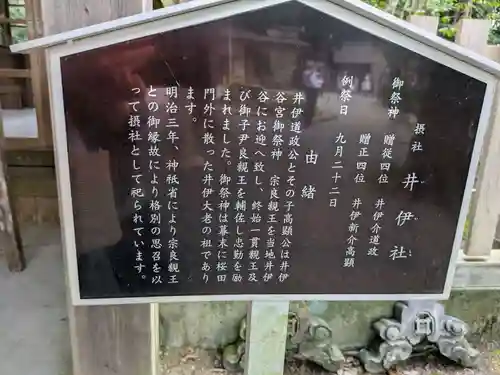 摂社 井伊社
御祭神 贈従四位 井伊介道政
贈正四位 井伊新介高顕
例祭日 九月二十二日
由緒
井伊道政公とその子高顕公は井伊
谷宮御祭神 宗良親王を当地井伊
谷にお迎へ致し、終始一貫親王及
び御子尹良親王を輔佐し忠勤を励
まれました。御祭神は幕末に桜田
門外に散った井伊大老の祖であり
ます。
明治三年、神祇省により宗良親王
との御縁故により格別の思召を以
って摂社として祀られています。